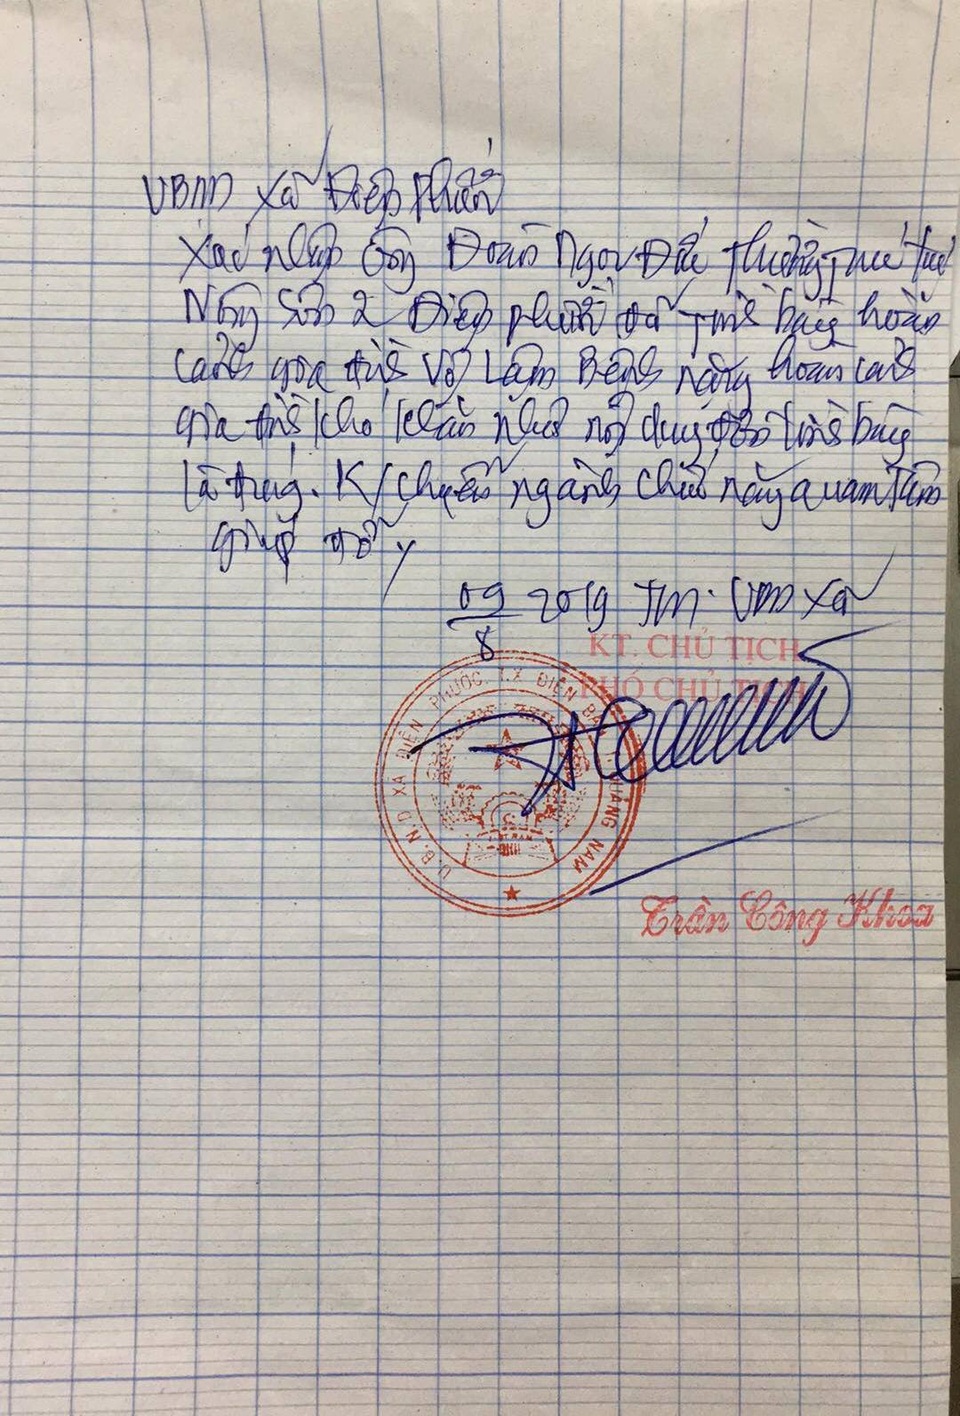 UBND xã Điện Phước
Xác nhận ông Đoàn Ngọc thường trú tại
Nông Sơn 2 Điện Phước đã trình bày hoàn
cảnh gia đình vợ Lâm Bệnh nặng hoàn cảnh
gia đình khó khăn như nội dung đơn trình bày
là đúng. K/chuyển ngành chức năng quan tâm
giúp đỡ
09/8 2019 TM. UBND xã
KT. CHỦ TỊCH
PHÓ CHỦ TỊCH
U.B.N.D XÃ ĐIỆN PHƯỚC. T.X ĐIỆN BÀN T. QUẢNG NAM
Trần Công Khoa